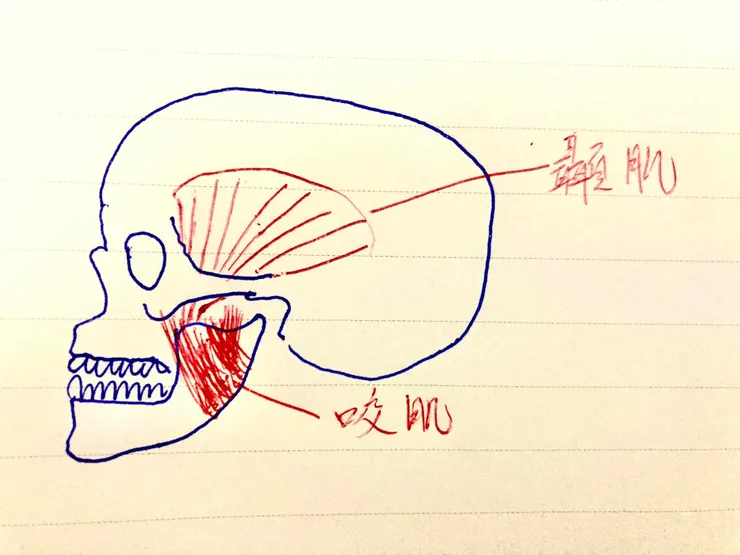 顳肌
咬肌